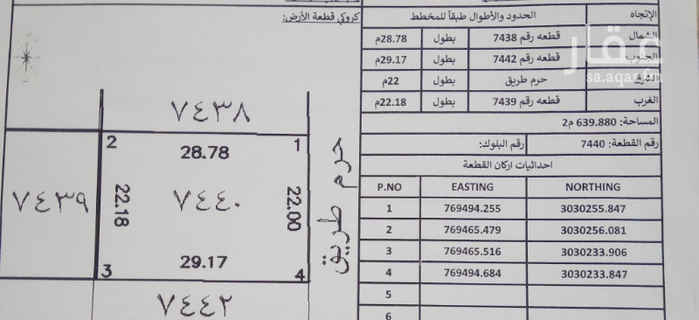 الإتجاه الحدود والأطوال طبقاً للمخطط
الشمال قطعه رقم 7438 بطول 28.78م
الجنوب قطعه رقم 7442 بطول 29.17م
الشرق حرم طريق بطول 22م
الغرب قطعه رقم 7439 بطول 22.18م
المساحة: 639.880 م2
رقم القطعة: 7440 رقم البلوك:
احداثيات اركان القطعة
P.NO EASTING NORTHING
1 769494.255 3030255.847
2 769465.479 3030256.081
3 769465.516 3030233.906
4 769494.684 3030233.847
5
6
عقار
sa.aqar.fm
كروكي قطعة الأرض:
٧٤٣٨
2
1
28.78
٧٤٣٩
22.18
٧٤٤٠
22.00
حرم طريق
29.17
3
4
٧٤٤٢